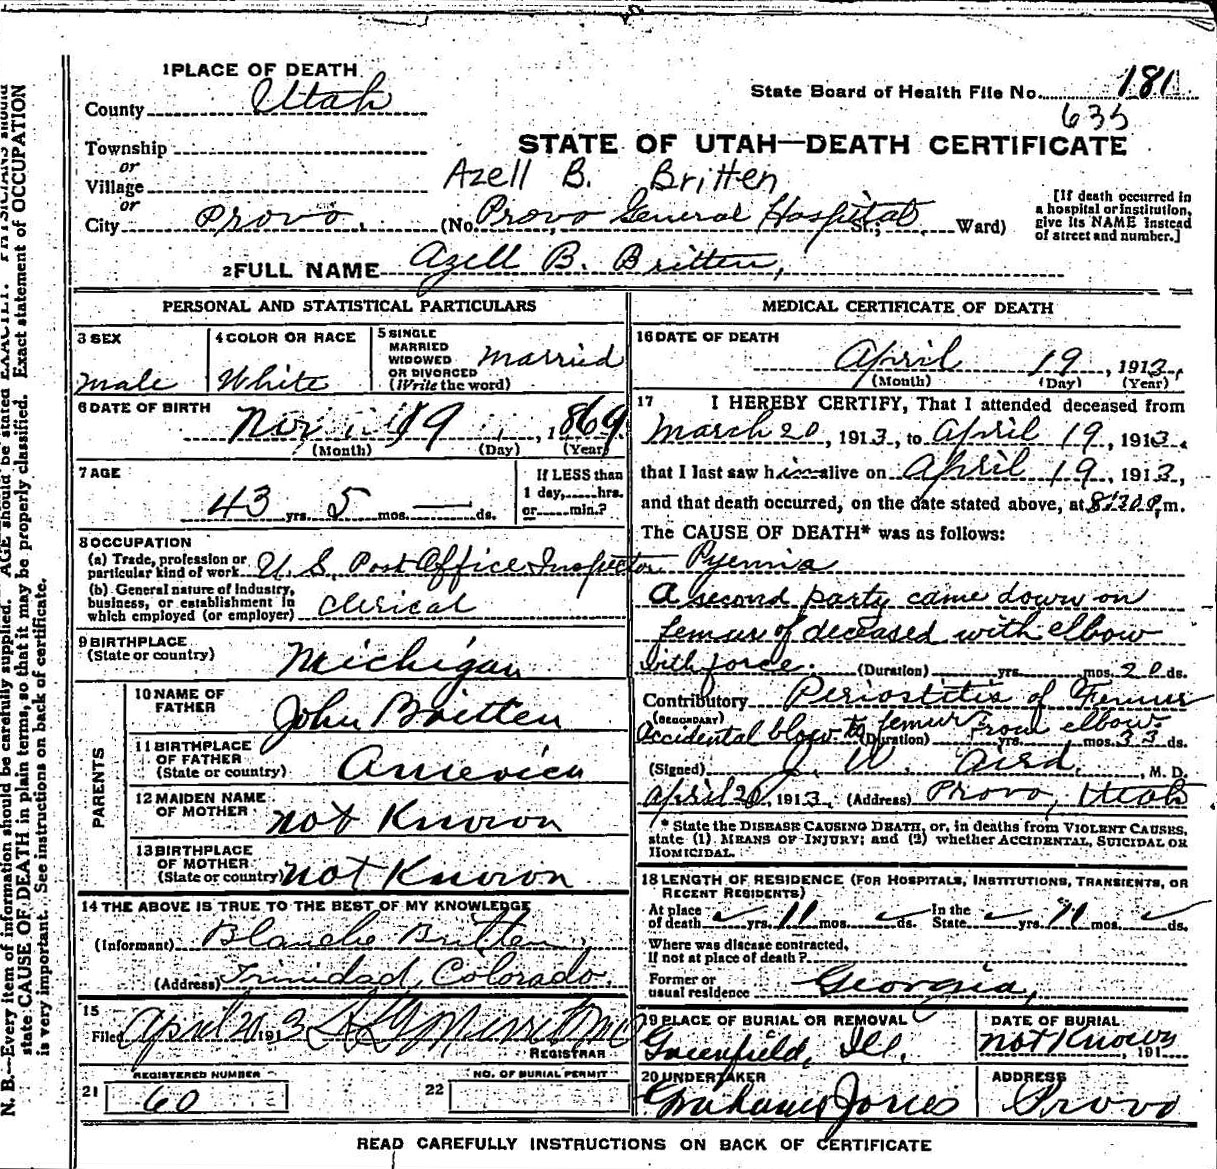 1 PLACE OF DEATH
County Utah
State Board of Health File No. 181
635
Township
or
Village
or
STATE OF UTAH—DEATH CERTIFICATE
Azell B. Britten
City Provo, (No. Provo General Hospital St.; Ward)
[If death occurred in a hospital or institution, give its NAME instead of street and number.]
2 FULL NAME Azell B. Britten,
PERSONAL AND STATISTICAL PARTICULARS
3 SEX
male
4 COLOR OR RACE
White
5 SINGLE
MARRIED
WIDOWED
OR DIVORCED
(Write the word)
married
6 DATE OF BIRTH
Nov 19, 1869
(Month) (Day) (Year)
7 AGE
43 yrs. 5 mos. — ds.
If LESS than
1 day, hrs.
or min.?
8 OCCUPATION
(a) Trade, profession or
particular kind of work U. S. Post Office Inspector
(b) General nature of industry,
business, or establishment in
which employed (or employer) clerical
9 BIRTHPLACE
(State or country) Michigan
PARENTS
10 NAME OF
FATHER John Britten
11 BIRTHPLACE
OF FATHER
(State or country) America
12 MAIDEN NAME
OF MOTHER not Known
13 BIRTHPLACE
OF MOTHER
(State or country) not Known
14 THE ABOVE IS TRUE TO THE BEST OF MY KNOWLEDGE
(Informant) Blanche Britten,
(Address) Trinidad, Colorado.
15
Filed April 20 1913
REGISTRAR
21 REGISTERED NUMBER
60
22 NO. OF BURIAL PERMIT
MEDICAL CERTIFICATE OF DEATH
16 DATE OF DEATH
April 19, 1913,
(Month) (Day) (Year)
17 I HEREBY CERTIFY, That I attended deceased from
March 20, 1913, to April 19, 1913,
that I last saw him alive on April 19, 1913,
and that death occurred, on the date stated above, at 8:30 P. m.
The CAUSE OF DEATH* was as follows:
Pyemia
A second party came down on
femur of deceased with elbow
with force. (Duration) yrs. mos. 20 ds.
Contributory Periostitis of Femur
(SECONDARY)
Accidental blow to femur from elbow.
(Duration) yrs. mos. 33 ds.
(Signed) J. W. Aird, M. D.
April 20, 1913, (Address) Provo, Utah
* State the DISEASE CAUSING DEATH, or, in deaths from VIOLENT CAUSES,
state (1) MEANS OF INJURY; and (2) whether ACCIDENTAL, SUICIDAL OR
HOMICIDAL.
18 LENGTH OF RESIDENCE (FOR HOSPITALS, INSTITUTIONS, TRANSIENTS, OR
RECENT RESIDENTS)
At place
of death yrs. 11 mos. ds. In the
State yrs. 11 mos. ds.
Where was disease contracted,
If not at place of death?
Former or
usual residence Georgia,
19 PLACE OF BURIAL OR REMOVAL
Greenfield, Ill.
DATE OF BURIAL
not Known, 191
20 UNDERTAKER
Jones
ADDRESS
Provo
READ CAREFULLY INSTRUCTIONS ON BACK OF CERTIFICATE
N. B.—Every item of information should be carefully supplied. AGE should be stated EXACTLY. PHYSICIANS should
state CAUSE OF DEATH in plain terms, so that it may be properly classified. Exact statement of OCCUPATION
is very important. See instructions on back of certificate.